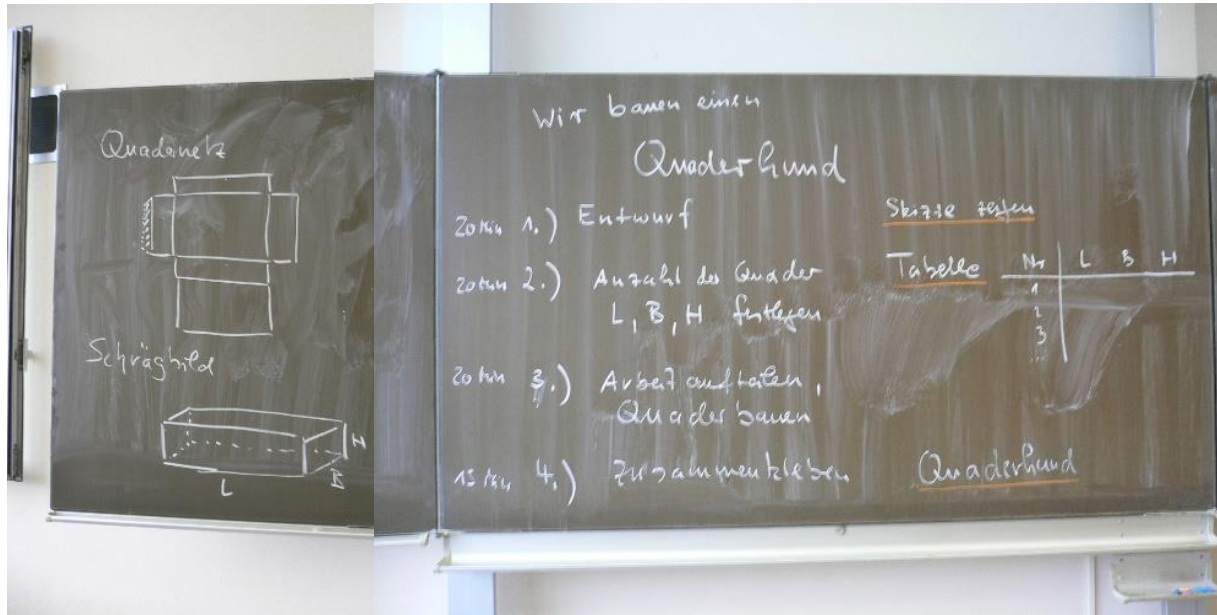 Quadernetz
Schrägbild
H
B
L
Wir bauen einen
Quaderhund
20 min 1.) Entwurf
Skizze
20 min 2.) Anzahl der Quader
L, B, H festlegen
Tabelle
Nr L B H
1
2
3
...
20 min 3.) Arbeit aufteilen,
Quader bauen
15 min 4.) Zusammenkleben
Quaderhund